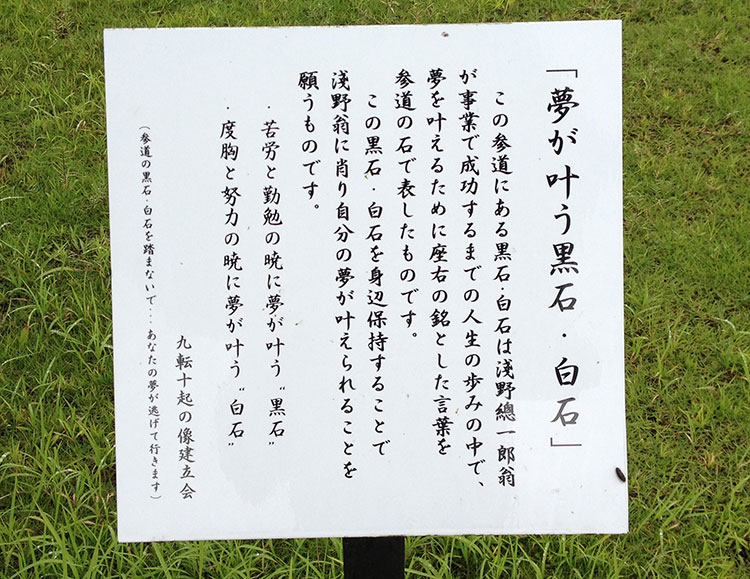 「夢が叶う黒石・白石」
この参道にある黒石・白石は淺野總一郎翁
が事業で成功するまでの人生の歩みの中で、
夢を叶えるために座右の銘とした言葉を
参道の石で表したものです。
この黒石・白石を身辺保持することで
淺野翁に肖り自分の夢が叶えられることを
願うものです。
・苦労と勤勉の暁に夢が叶う“黒石”
・度胸と努力の暁に夢が叶う“白石”
九転十起の像建立会
（参道の黒石・白石を踏まないで・・・あなたの夢が逃げて行きます）